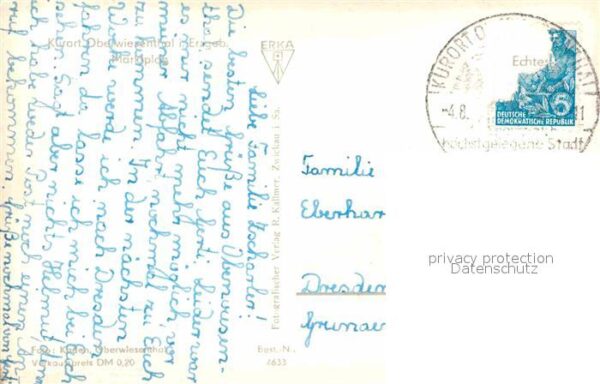 Kurort Oberwiesenthal i. Erzgeb.
Marktplatz
Liebe Familie
Die besten Grüße aus Oberwiesen-
thal sendet Euch Herti. Leider war
es mir nicht mehr möglich, vor
meiner Abfahrt nochmal zu Euch
zu kommen. In der nächsten
Woche werde ich nach Dresden
fahren da lasse ich mich bei Euch
sehen. Sagt aber nichts Helmut, denn
ich habe weder Post noch einen
auf bekommen. Grüße
Foto: Kaden, Oberwiesenthal
Verkaufspreis DM 0,20
Best. N.
7633
ERKA
Fotografischer Verlag R. Kallmer, Zwickau i. Sa.
KURORT O
THAL
Echter
-4.8.
11
höchstgelegene Stadt
DEUTSCHE
DEMOKRATISCHE REPUBLIK
6
Familie
Eberhar
Dresden
Grunaer
privacy protection
Datenschutz